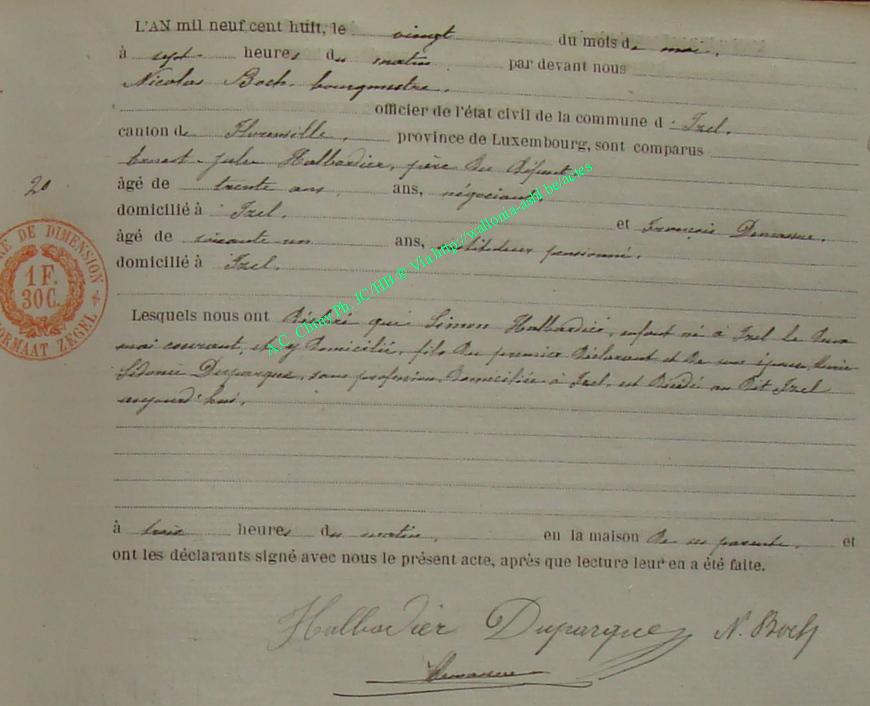 L'AN mil neuf cent huit, le vingt du mois de mai.
à sept heures du matin par devant nous
Nicolas Boch, bourgmestre.
officier de l'état civil de la commune d'Izel.
canton de Florenville, province de Luxembourg, sont comparus
Ernest-Jules Halbardier, père du défunt
20
âgé de trente ans ans, négociant
domicilié à Izel. et François
âgé de soixante-un ans, instituteur pensionné.
domicilié à Izel.
Lesquels nous ont déclaré que Simon Halbardier, enfant né à Izel le
mai courant, et y domicilié, fils du premier déclarant et de son épouse, Marie
Sidonie Duparque, sans profession, domiciliée à Izel, est décédé au dit Izel
aujourd'hui,
à trois heures du matin, en la maison de ses parents, et
ont les déclarants signé avec nous le présent acte, après que lecture leur en a été faite.
Halbardier Duparque N. Boch
RE DE DIMENSION
1 F.
30 C.
FORMAAT ZEGEL
A.C. Chiny Ph. JC/HB @ Via http://wallonia-asbl.be/actes